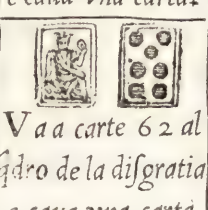 e caua vna carta.
V a a carte 6 2 al
qdro de la diſgratia
e caua vna carta